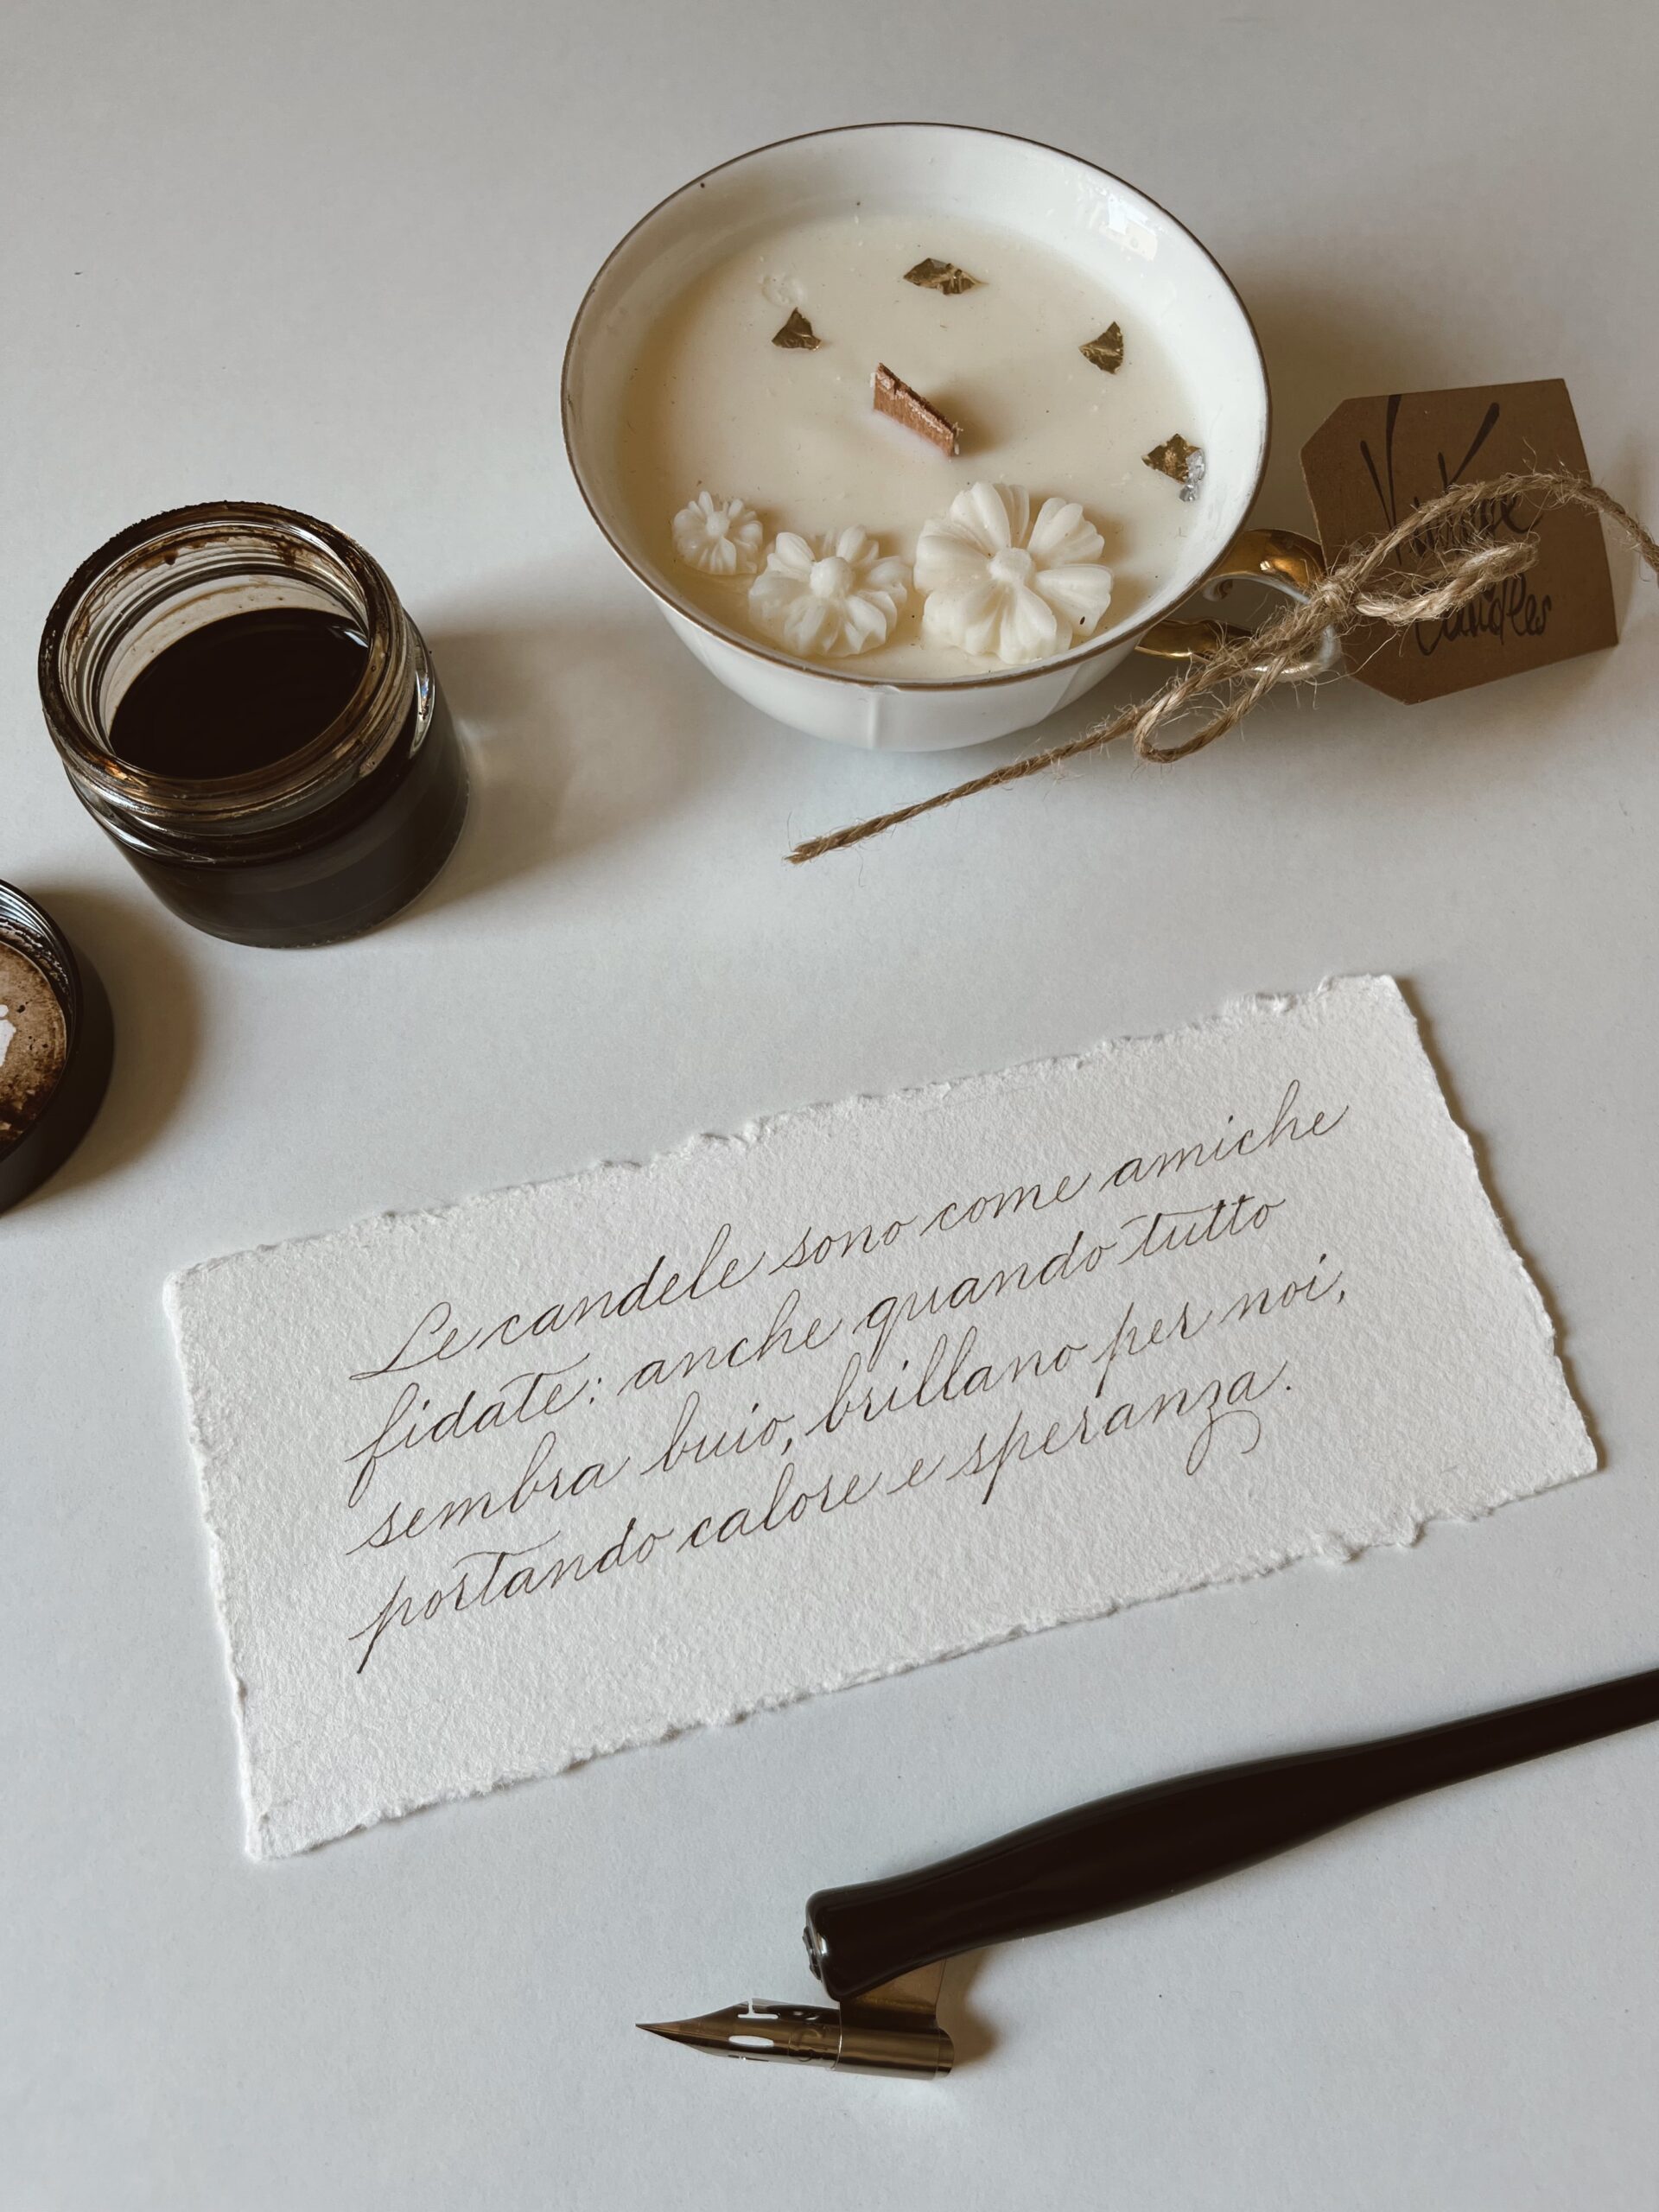 Vintage
Candles
Le candele sono come amiche
fidate: anche quando tutto
sembra buio, brillano per noi,
portando calore e speranza.